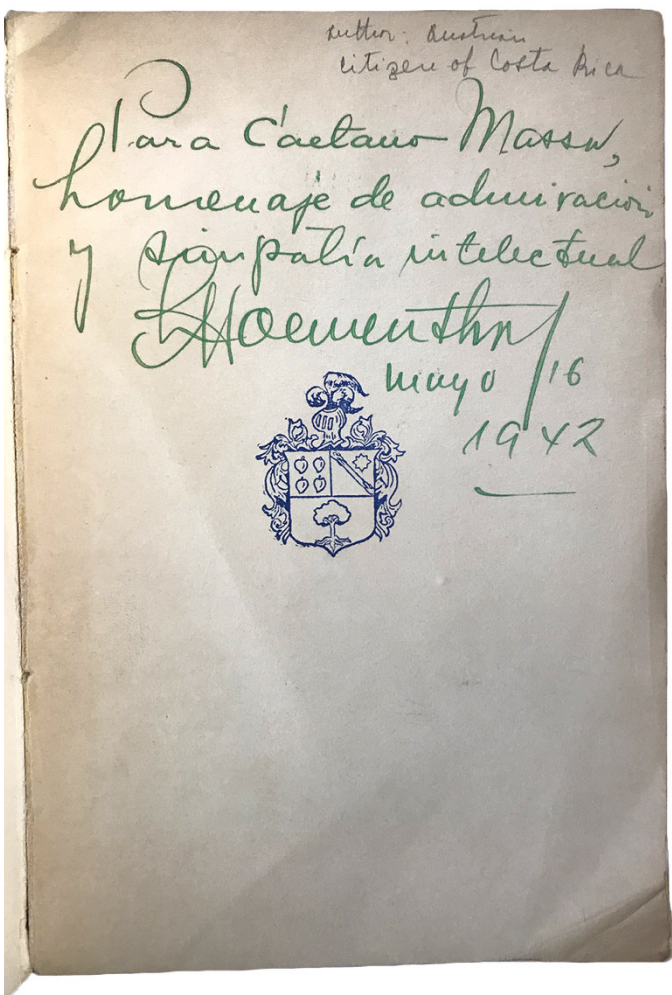 author: Austrian
citizen of Costa Rica
Para Caetano Massa,
homenaje de admiración
y simpatía intelectual
mayo 16
1942